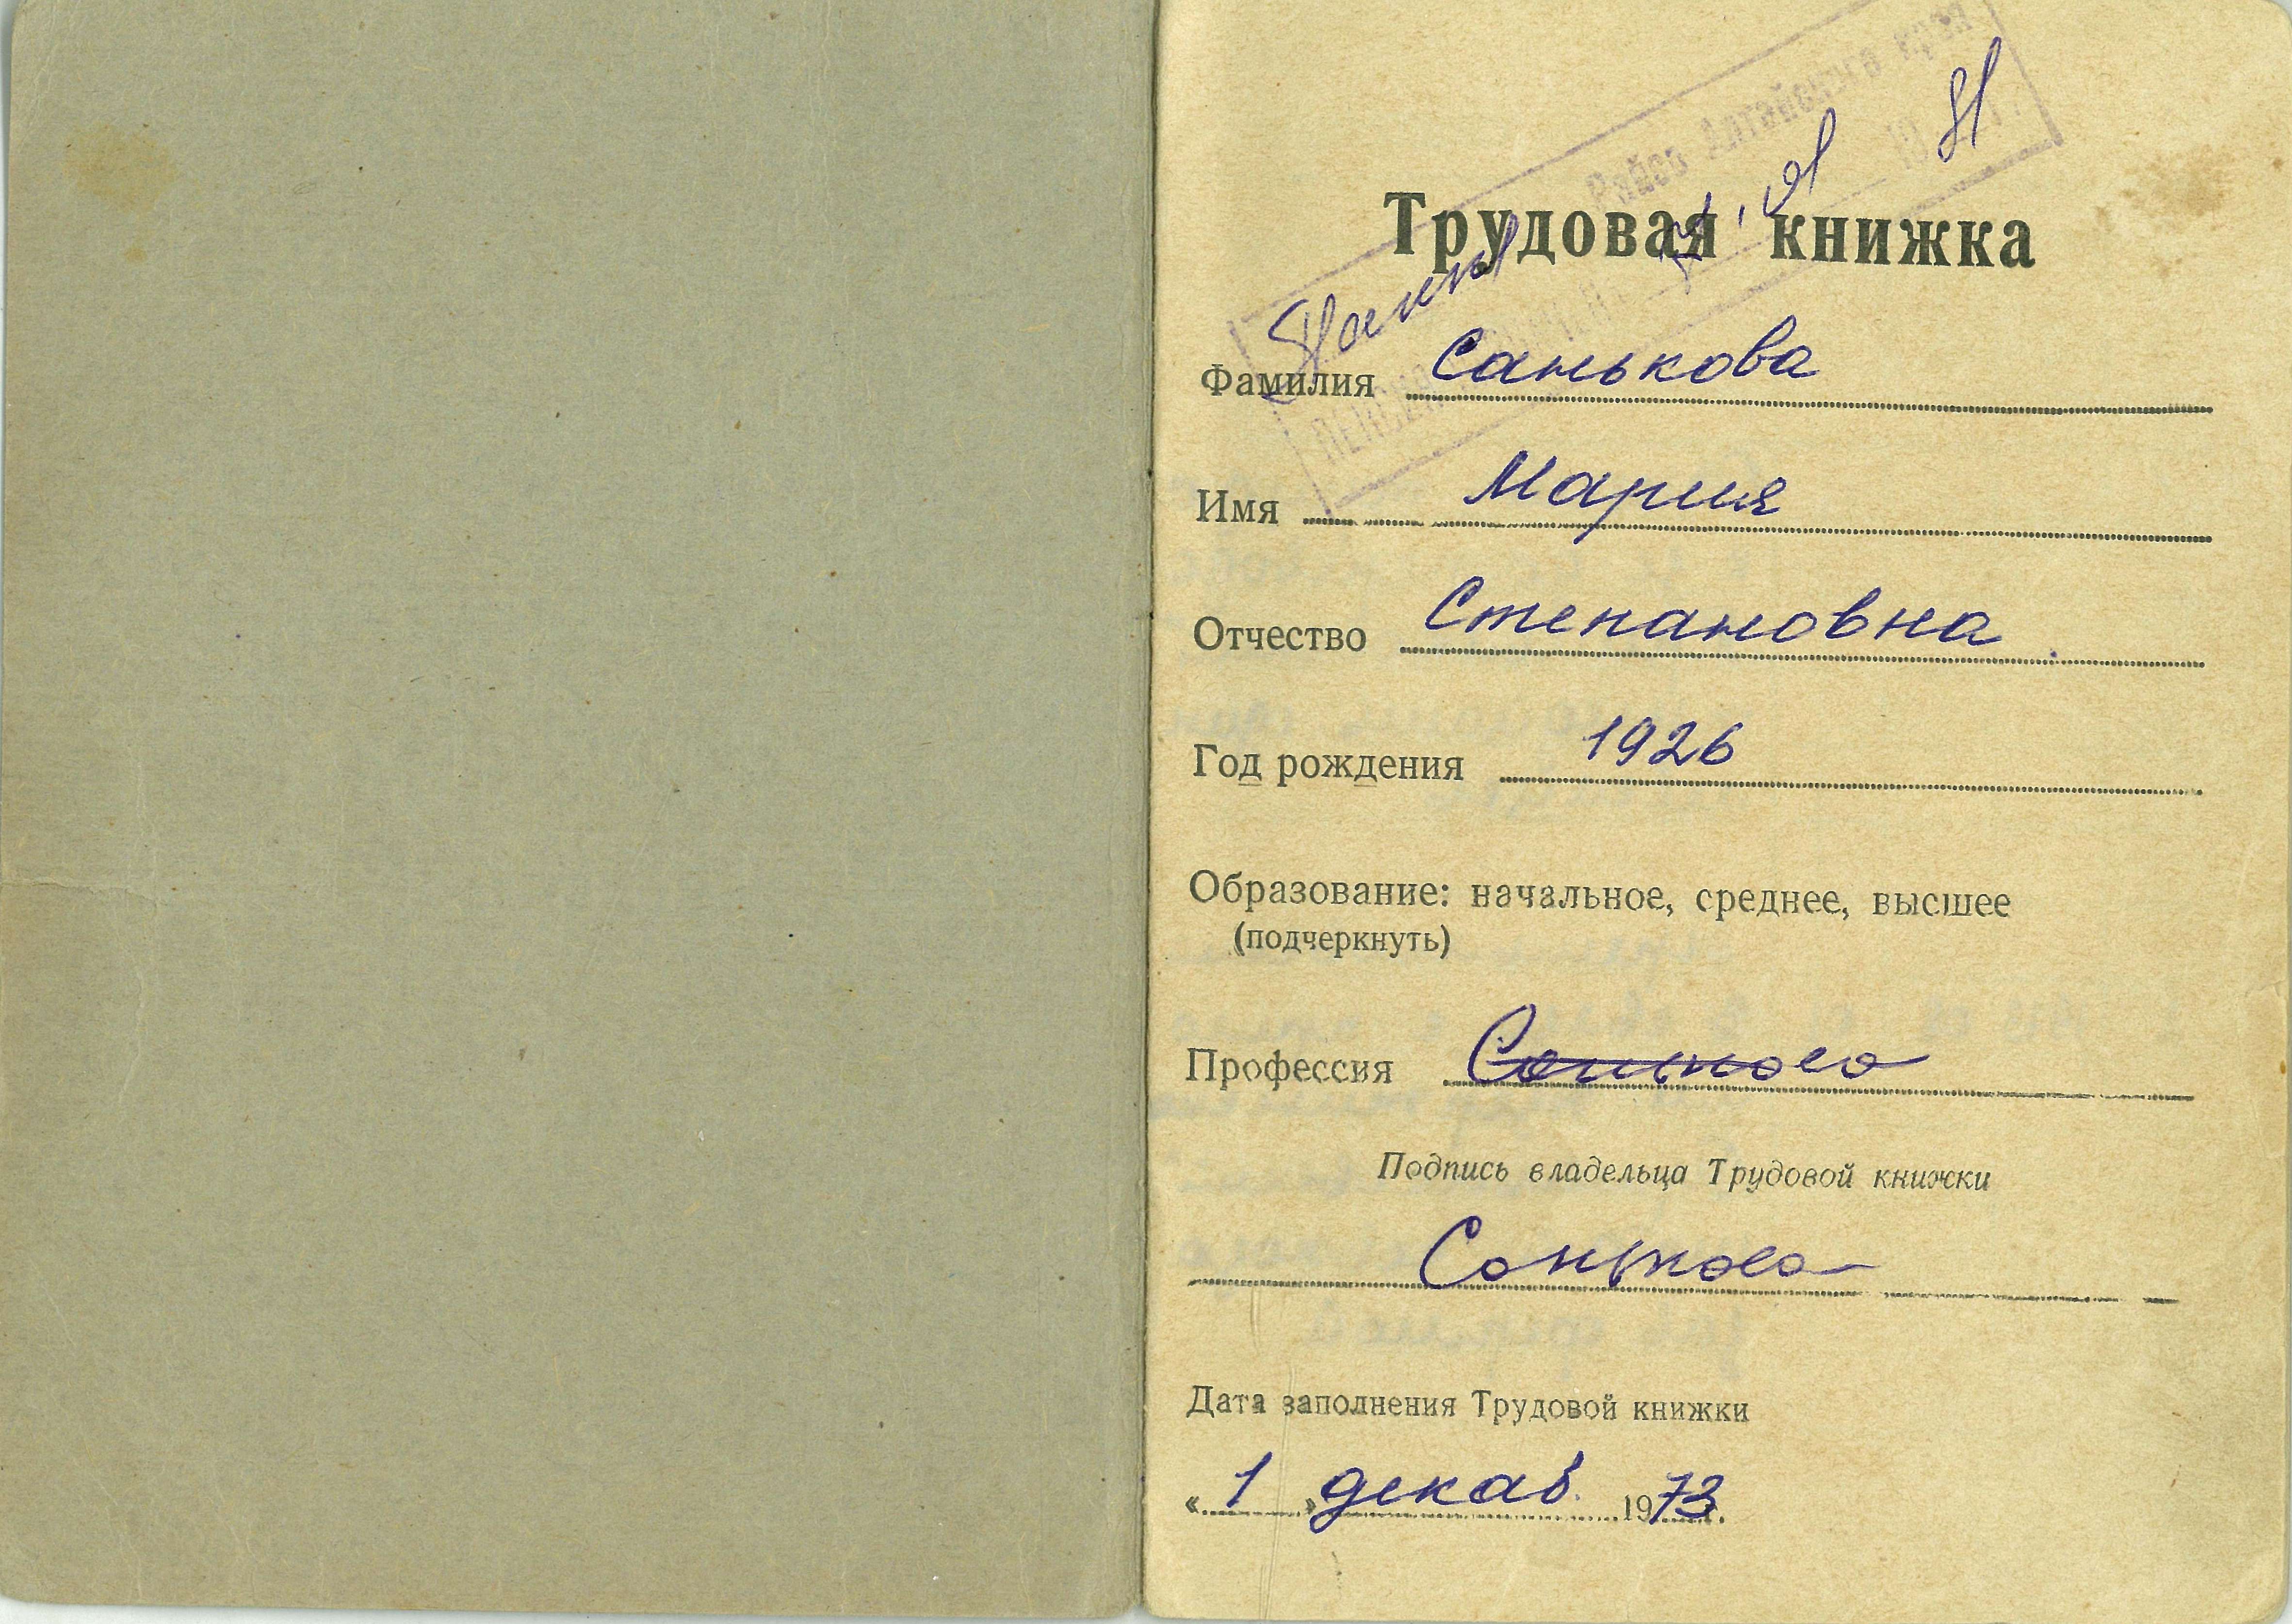 Райсо Алтайского края
Трудовая книжка
Фамилия Санькова
Имя Мария
Отчество Степановна
Год рождения 1926
Образование: начальное, среднее, высшее
(подчеркнуть)
Профессия Санькова
Подпись владельца Трудовой книжки
Санькова
Дата заполнения Трудовой книжки
«1» декаб. 1973 г.